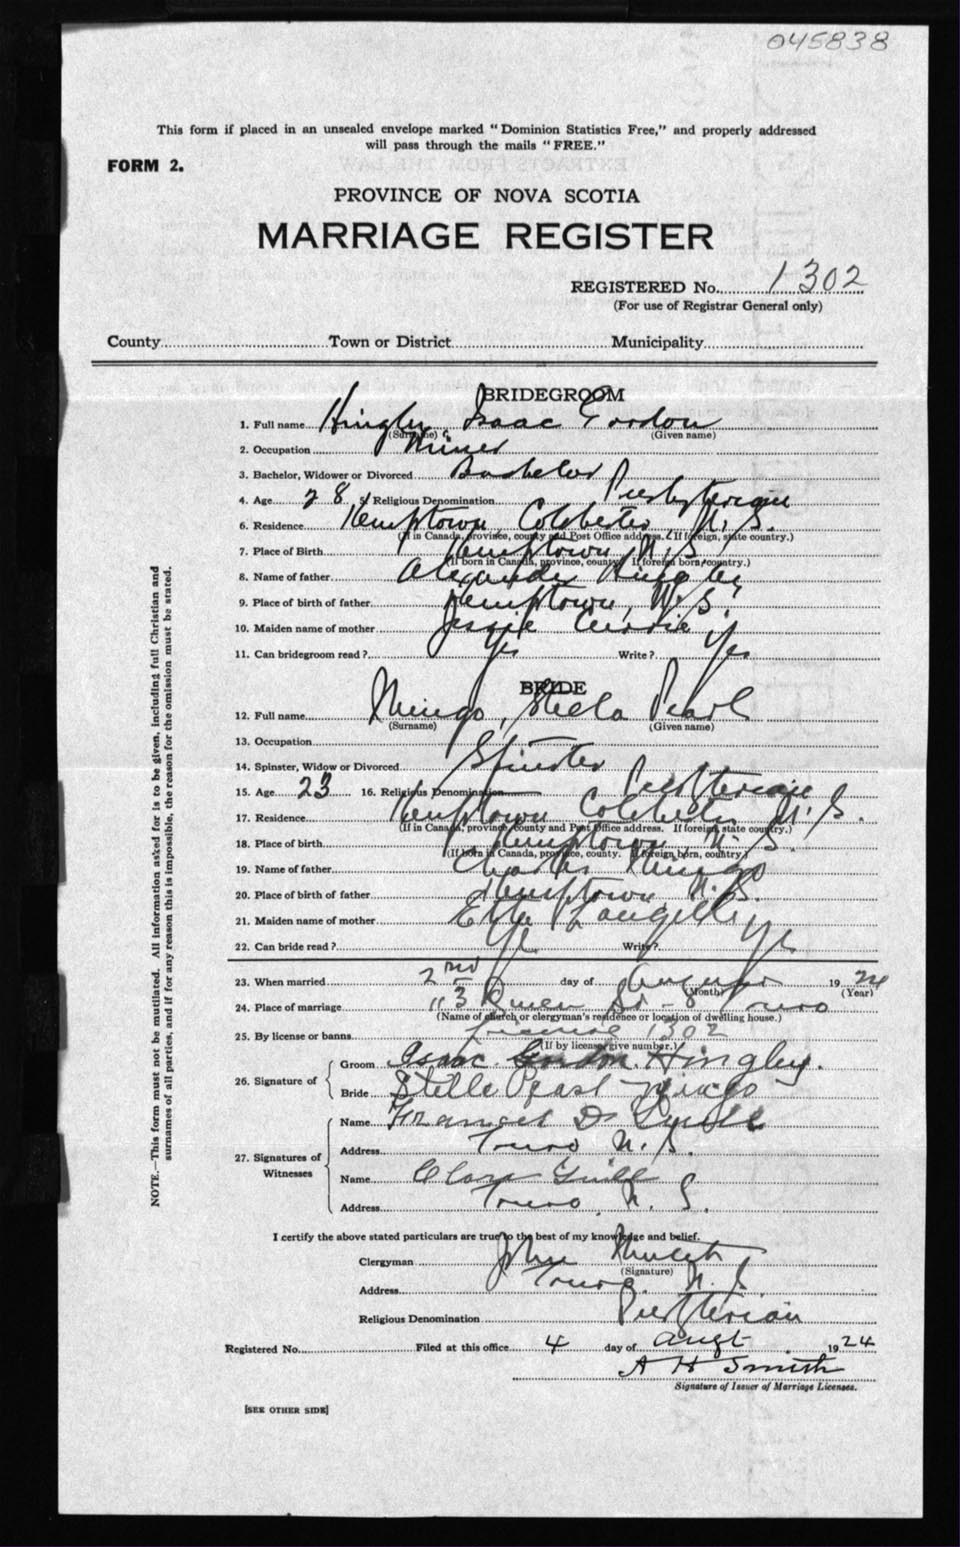 045838
This form if placed in an unsealed envelope marked "Dominion Statistics Free," and properly addressed
will pass through the mails "FREE."
FORM 2.
PROVINCE OF NOVA SCOTIA
MARRIAGE REGISTER
REGISTERED No. 1302
(For use of Registrar General only)
County Town or District Municipality
BRIDEGROOM
1. Full name Hingley Isaac Gordon
(Surname) (Given name)
2. Occupation Miner
3. Bachelor, Widower or Divorced Bachelor
4. Age 28 5. Religious Denomination Presbyterian
6. Residence Kemptown, Colchester, N. S.
(If in Canada, province, county and Post Office address. If foreign, state country.)
7. Place of Birth Kemptown, N. S.
(If born in Canada, province, county. If foreign born, country.)
8. Name of father Alexander Hingley
9. Place of birth of father Kemptown, N. S.
10. Maiden name of mother Jessie
11. Can bridegroom read? Yes Write? Yes
BRIDE
12. Full name Mingo, Stella Pearl
(Surname) (Given name)
13. Occupation
14. Spinster, Widow or Divorced Spinster
15. Age 23 16. Religious Denomination Presbyterian
17. Residence Kemptown Colchester N. S.
(If in Canada, province, county and Post Office address. If foreign, state country.)
18. Place of birth Kemptown N. S.
(If born in Canada, province, county. If foreign born, country.)
19. Name of father Charles Mingo
20. Place of birth of father Kemptown N. S.
21. Maiden name of mother Langille
22. Can bride read? Yes Write? Yes
23. When married 2nd day of August 1924
(Month) (Year)
24. Place of marriage Queen St - Truro
(Name of church or clergyman's residence or location of dwelling house.)
25. By license or banns License 1302
(If by license give number.)
26. Signature of Groom Isaac Gordon Hingley.
Bride Stella Pearl Mingo
27. Signatures of Witnesses Name D
Address Truro N. S.
Name Clara
Address Truro, N. S.
I certify the above stated particulars are true to the best of my knowledge and belief.
Clergyman John
(Signature)
Address Truro N. S
Religious Denomination Presbyterian
Registered No. Filed at this office 4 day of Augt 1924
A H Smith
Signature of Issuer of Marriage Licenses.
[SEE OTHER SIDE]
NOTE.—This form must not be mutilated. All information asked for is to be given, including full Christian and
surnames of all parties, and if for any reason this is impossible, the reason for the omission must be stated.